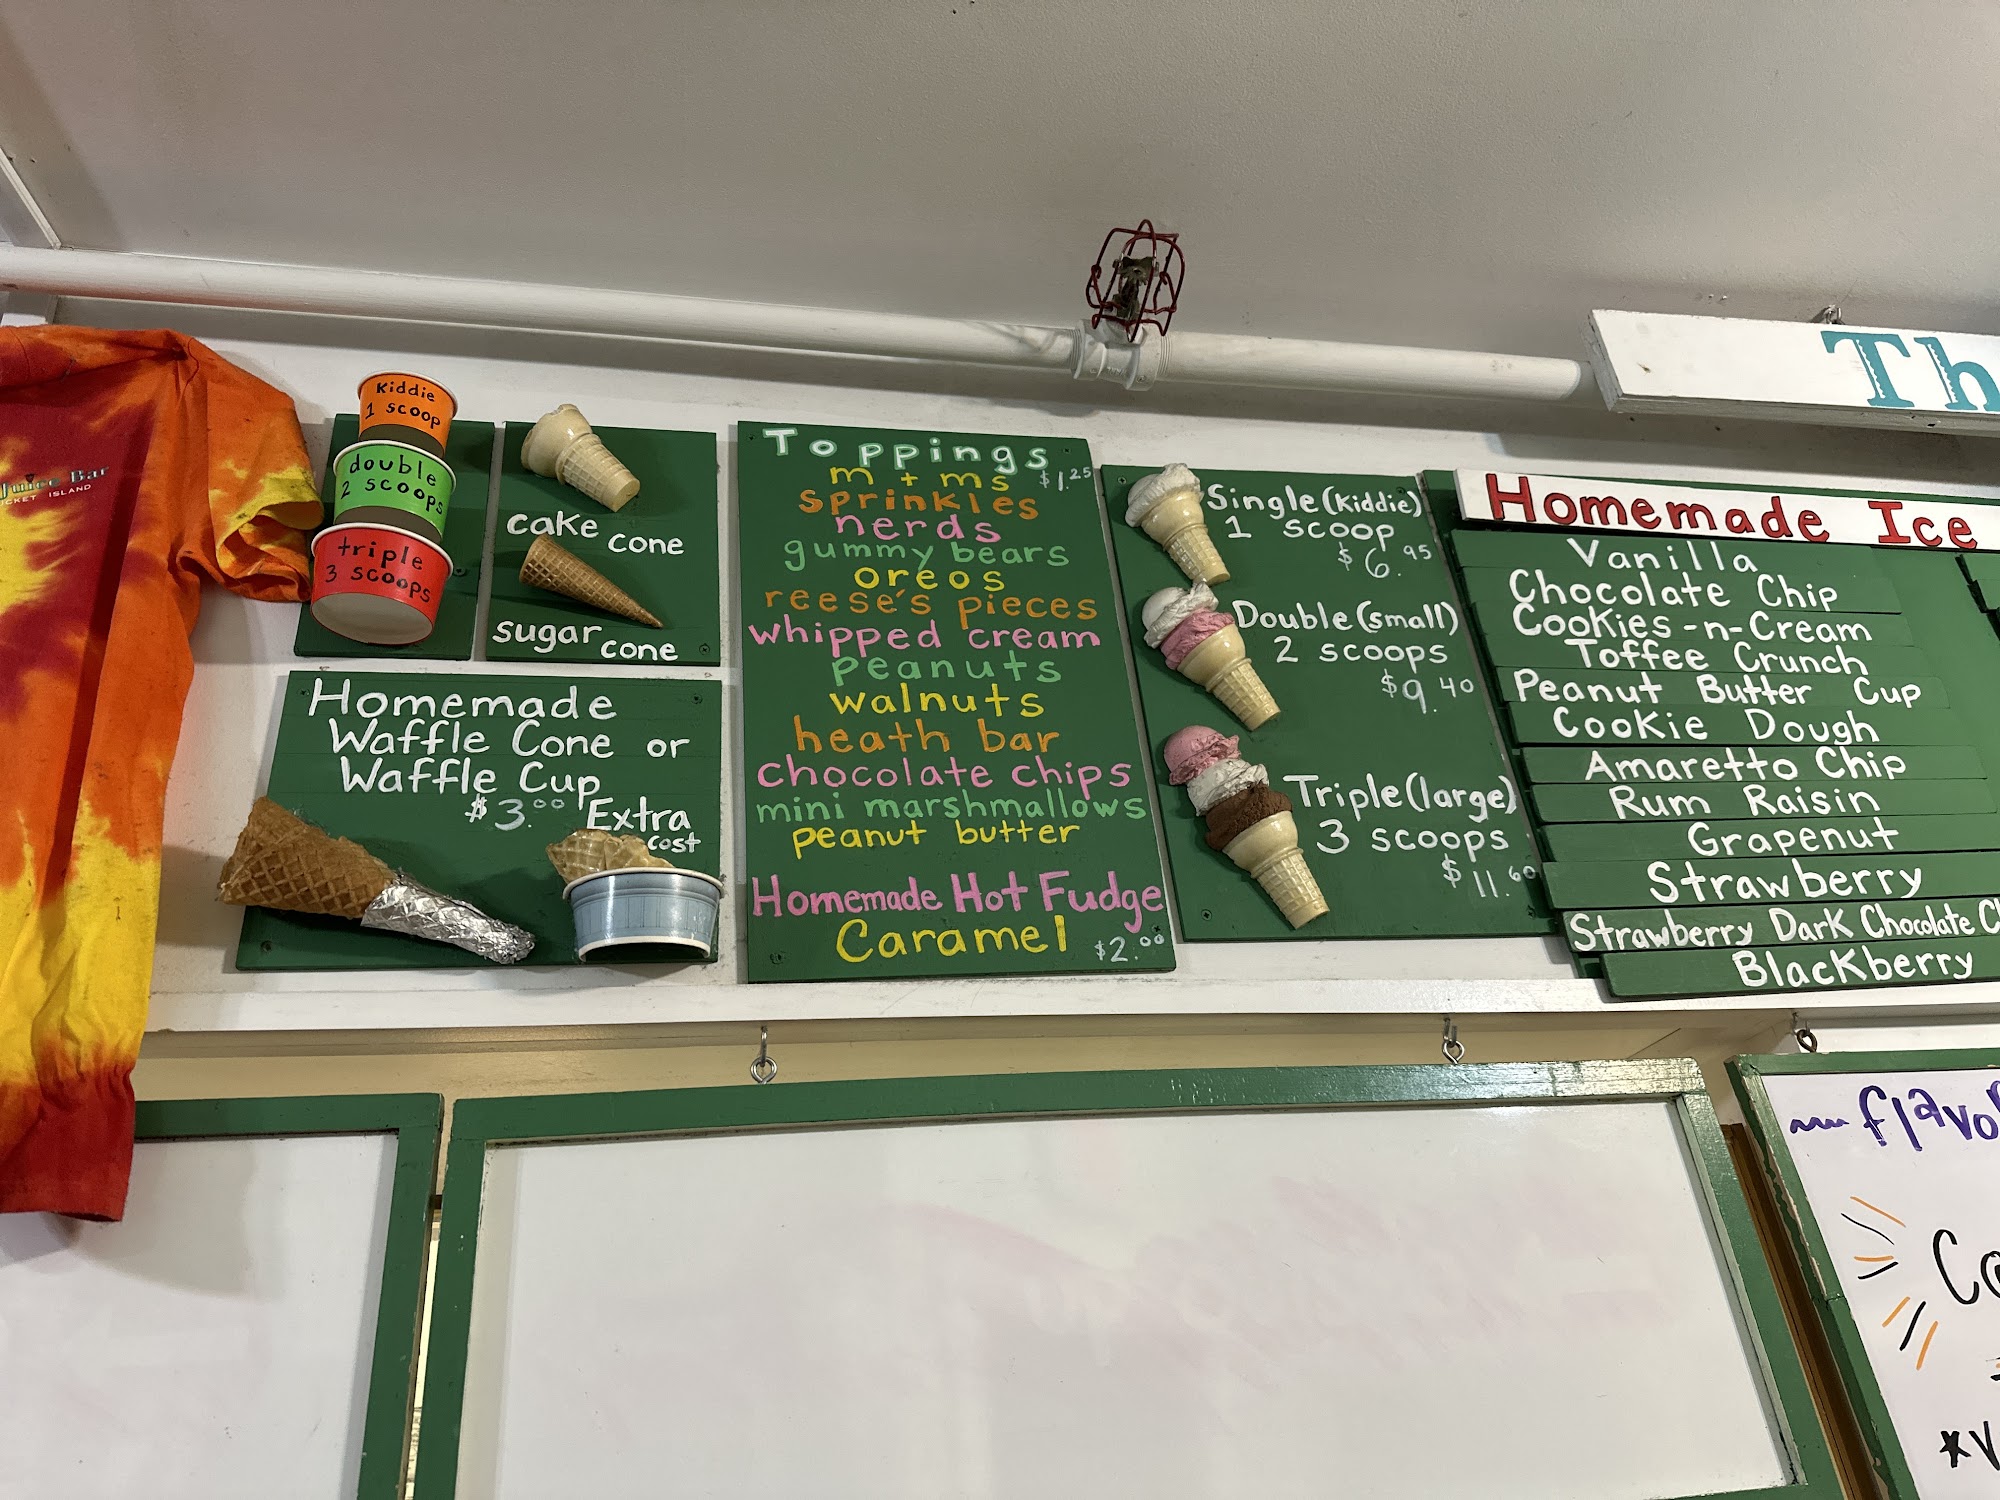 Juice Bar
ISLAND
Kiddie
1 scoop
double
2 scoops
triple
3 scoops
cake cone
sugar cone
Homemade
Waffle Cone or
Waffle Cup
$3.00 Extra
cost
Toppings
m + ms $1.25
sprinkles
nerds
gummy bears
oreos
reese's pieces
whipped cream
peanuts
walnuts
heath bar
chocolate chips
mini marshmallows
peanut butter
Homemade Hot Fudge
Caramel $2.00
Single (Kiddie)
1 scoop
$6.95
Double (small)
2 scoops
$9.40
Triple (large)
3 scoops
$11.60
Th
Homemade Ice
Vanilla
Chocolate Chip
Cookies-n-Cream
Toffee Crunch
Peanut Butter Cup
Cookie Dough
Amaretto Chip
Rum Raisin
Grapenut
Strawberry
Strawberry Dark Chocolate C
Blackberry
flavor